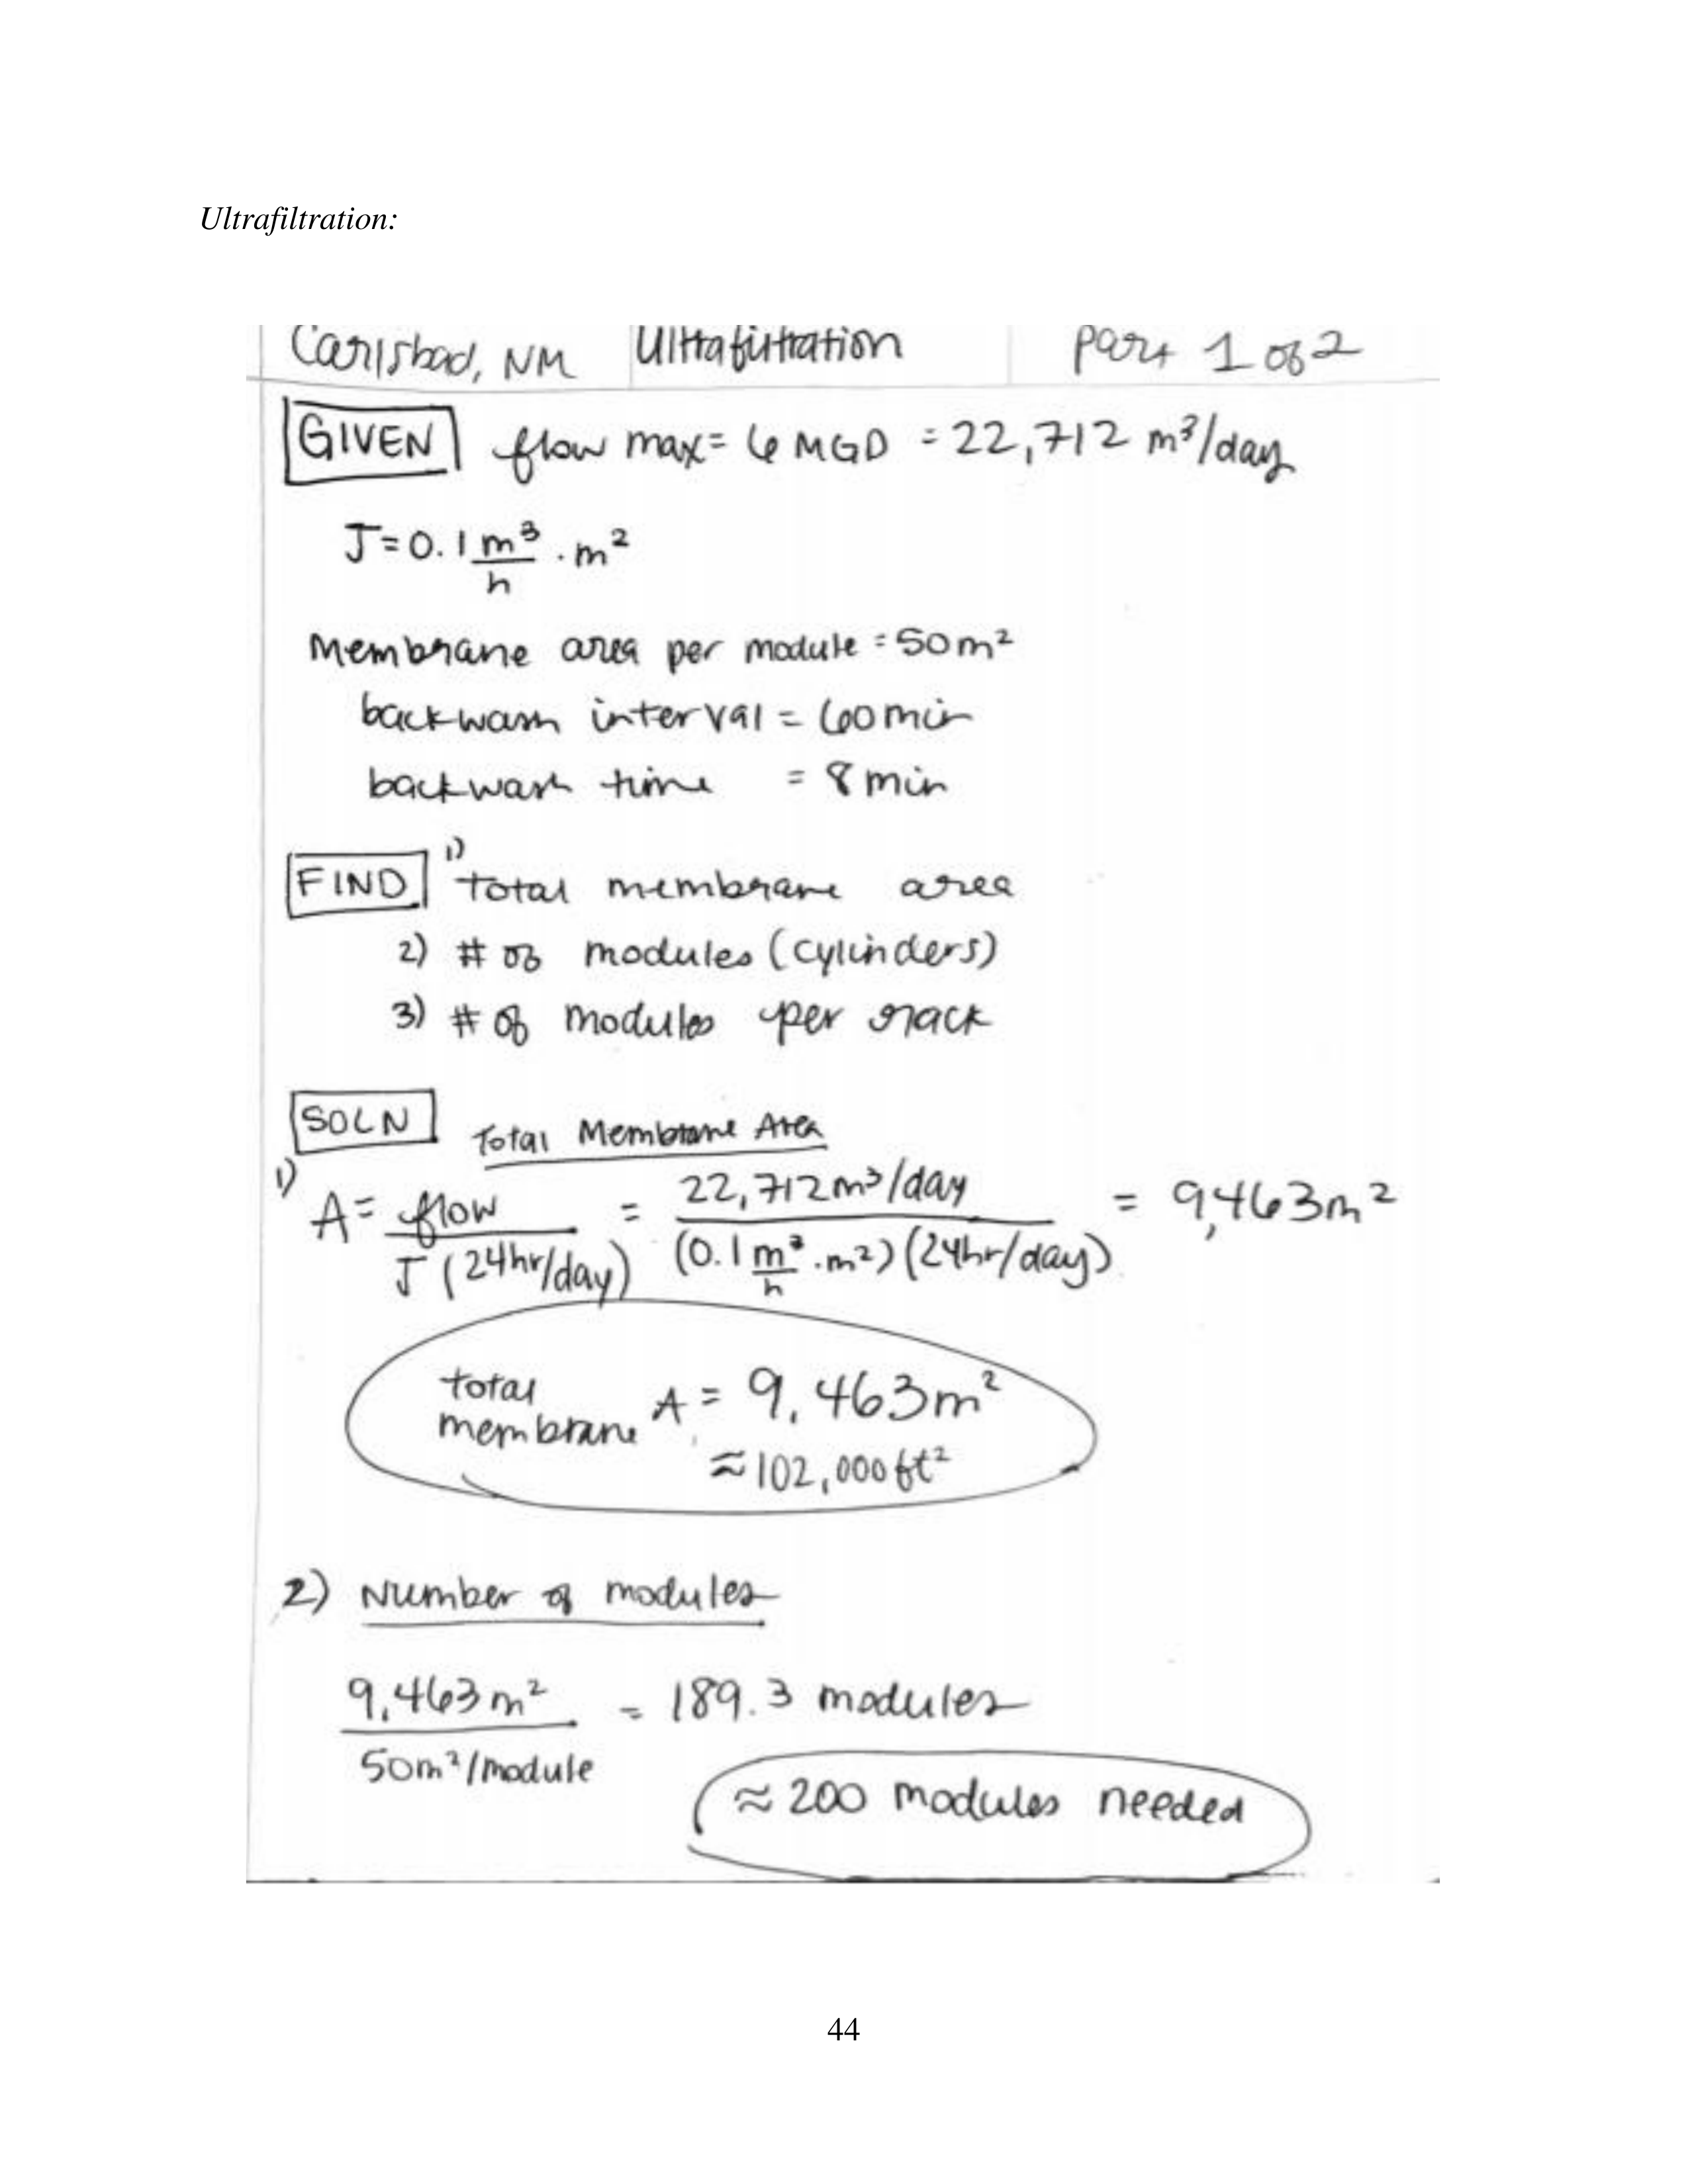 Ultrafiltration:
Carlsbad, NM Ultrafiltration Part 1 of 2
GIVEN flow max = 6 MGD = 22,712 m³/day
J = 0.1 m³/h · m²
Membrane area per module = 50 m²
backwash interval = 60 min
backwash time = 8 min
FIND 1) total membrane area
2) # of modules (cylinders)
3) # of modules per rack
SOLN Total Membrane Area
1) A = flow / J (24hr/day) = 22,712 m³/day / (0.1 m³/h · m²) (24hr/day) = 9,463 m²
total membrane A = 9,463 m²
≈ 102,000 ft²
2) Number of modules
9,463 m² / 50 m²/module = 189.3 modules
≈ 200 modules needed
44